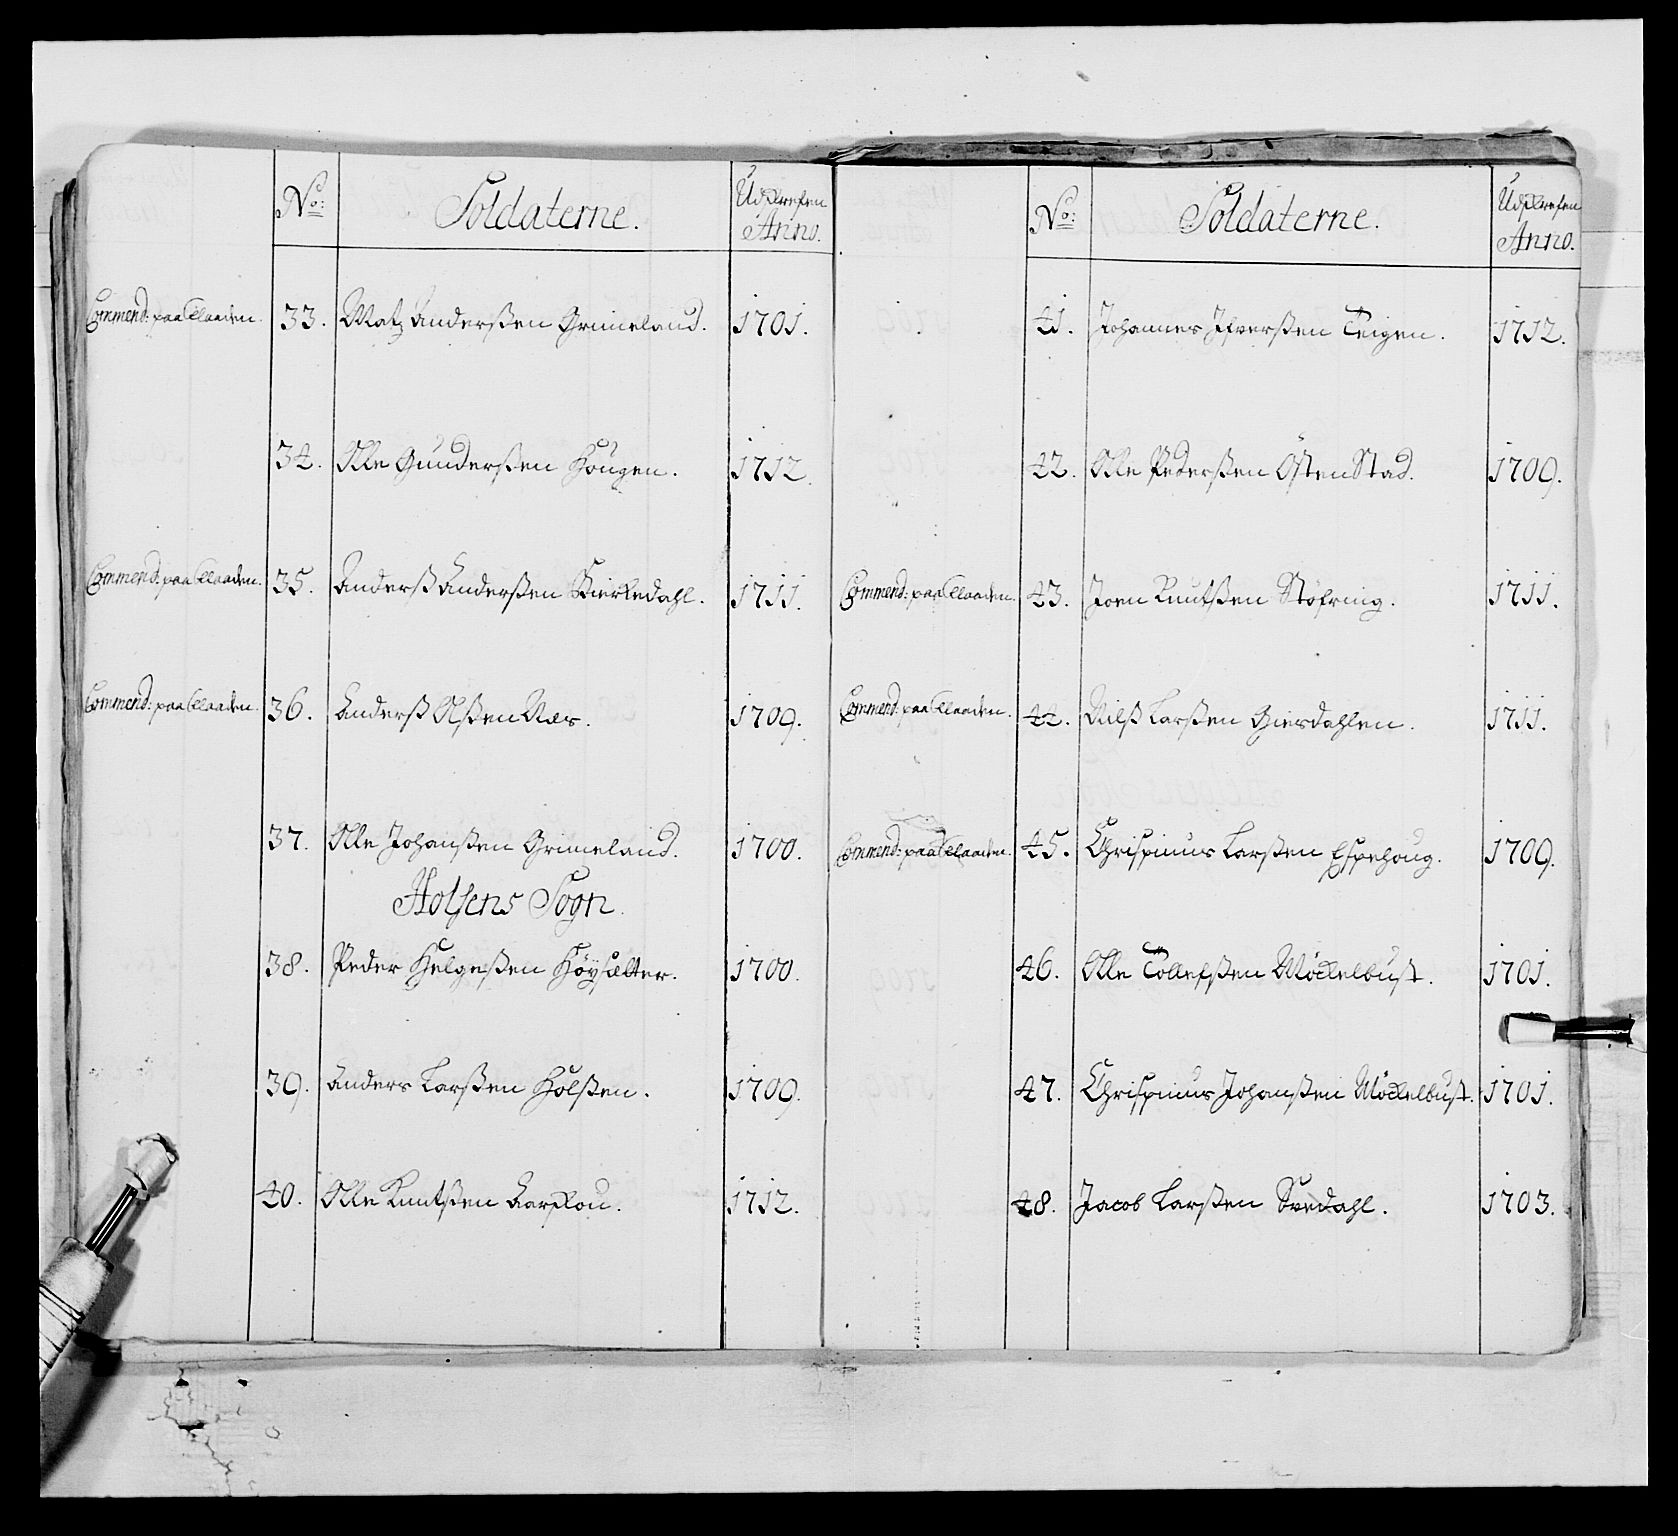 No: Soldaterne. Udskrefen Anno.
Commend: paa Flaaden. 33. Matz Anderßen Grimeland. 1701.
34. Olle Gunderßen Hougen. 1712.
Commend: paa Flaaden. 35. Anderß Anderßen Kierkedahl. 1711.
Commend: paa Flaaden. 36. Anderß Olßen Næs. 1709.
37. Olle Johanßen Grimeland. 1700.
Holsens Sogn.
38. Peder Helgeßen Höysæter. 1700.
39. Anders Larßen Holßen. 1709.
40. Olle Knutßen Aarskou. 1712.
No: Soldaterne. Udskrefen Anno.
41. Johannes Ifverßen Teigen. 1712.
42. Olle Pederßen Östenstad. 1709.
Commend: paa Flaaden. 43. Joen Knutßen Stöfring. 1711.
Commend: paa Flaaden. 44. Nilß Larßen Gierdahlen. 1711.
Commend: paa Flaaden. 45. Chrispinus Larßen Espehoug. 1709.
46. Olle Tollefßen Möckelbust. 1701.
47. Chrispinus Johanßen Möckelbust. 1701.
48. Jacob Larßen Svedahl. 1703.